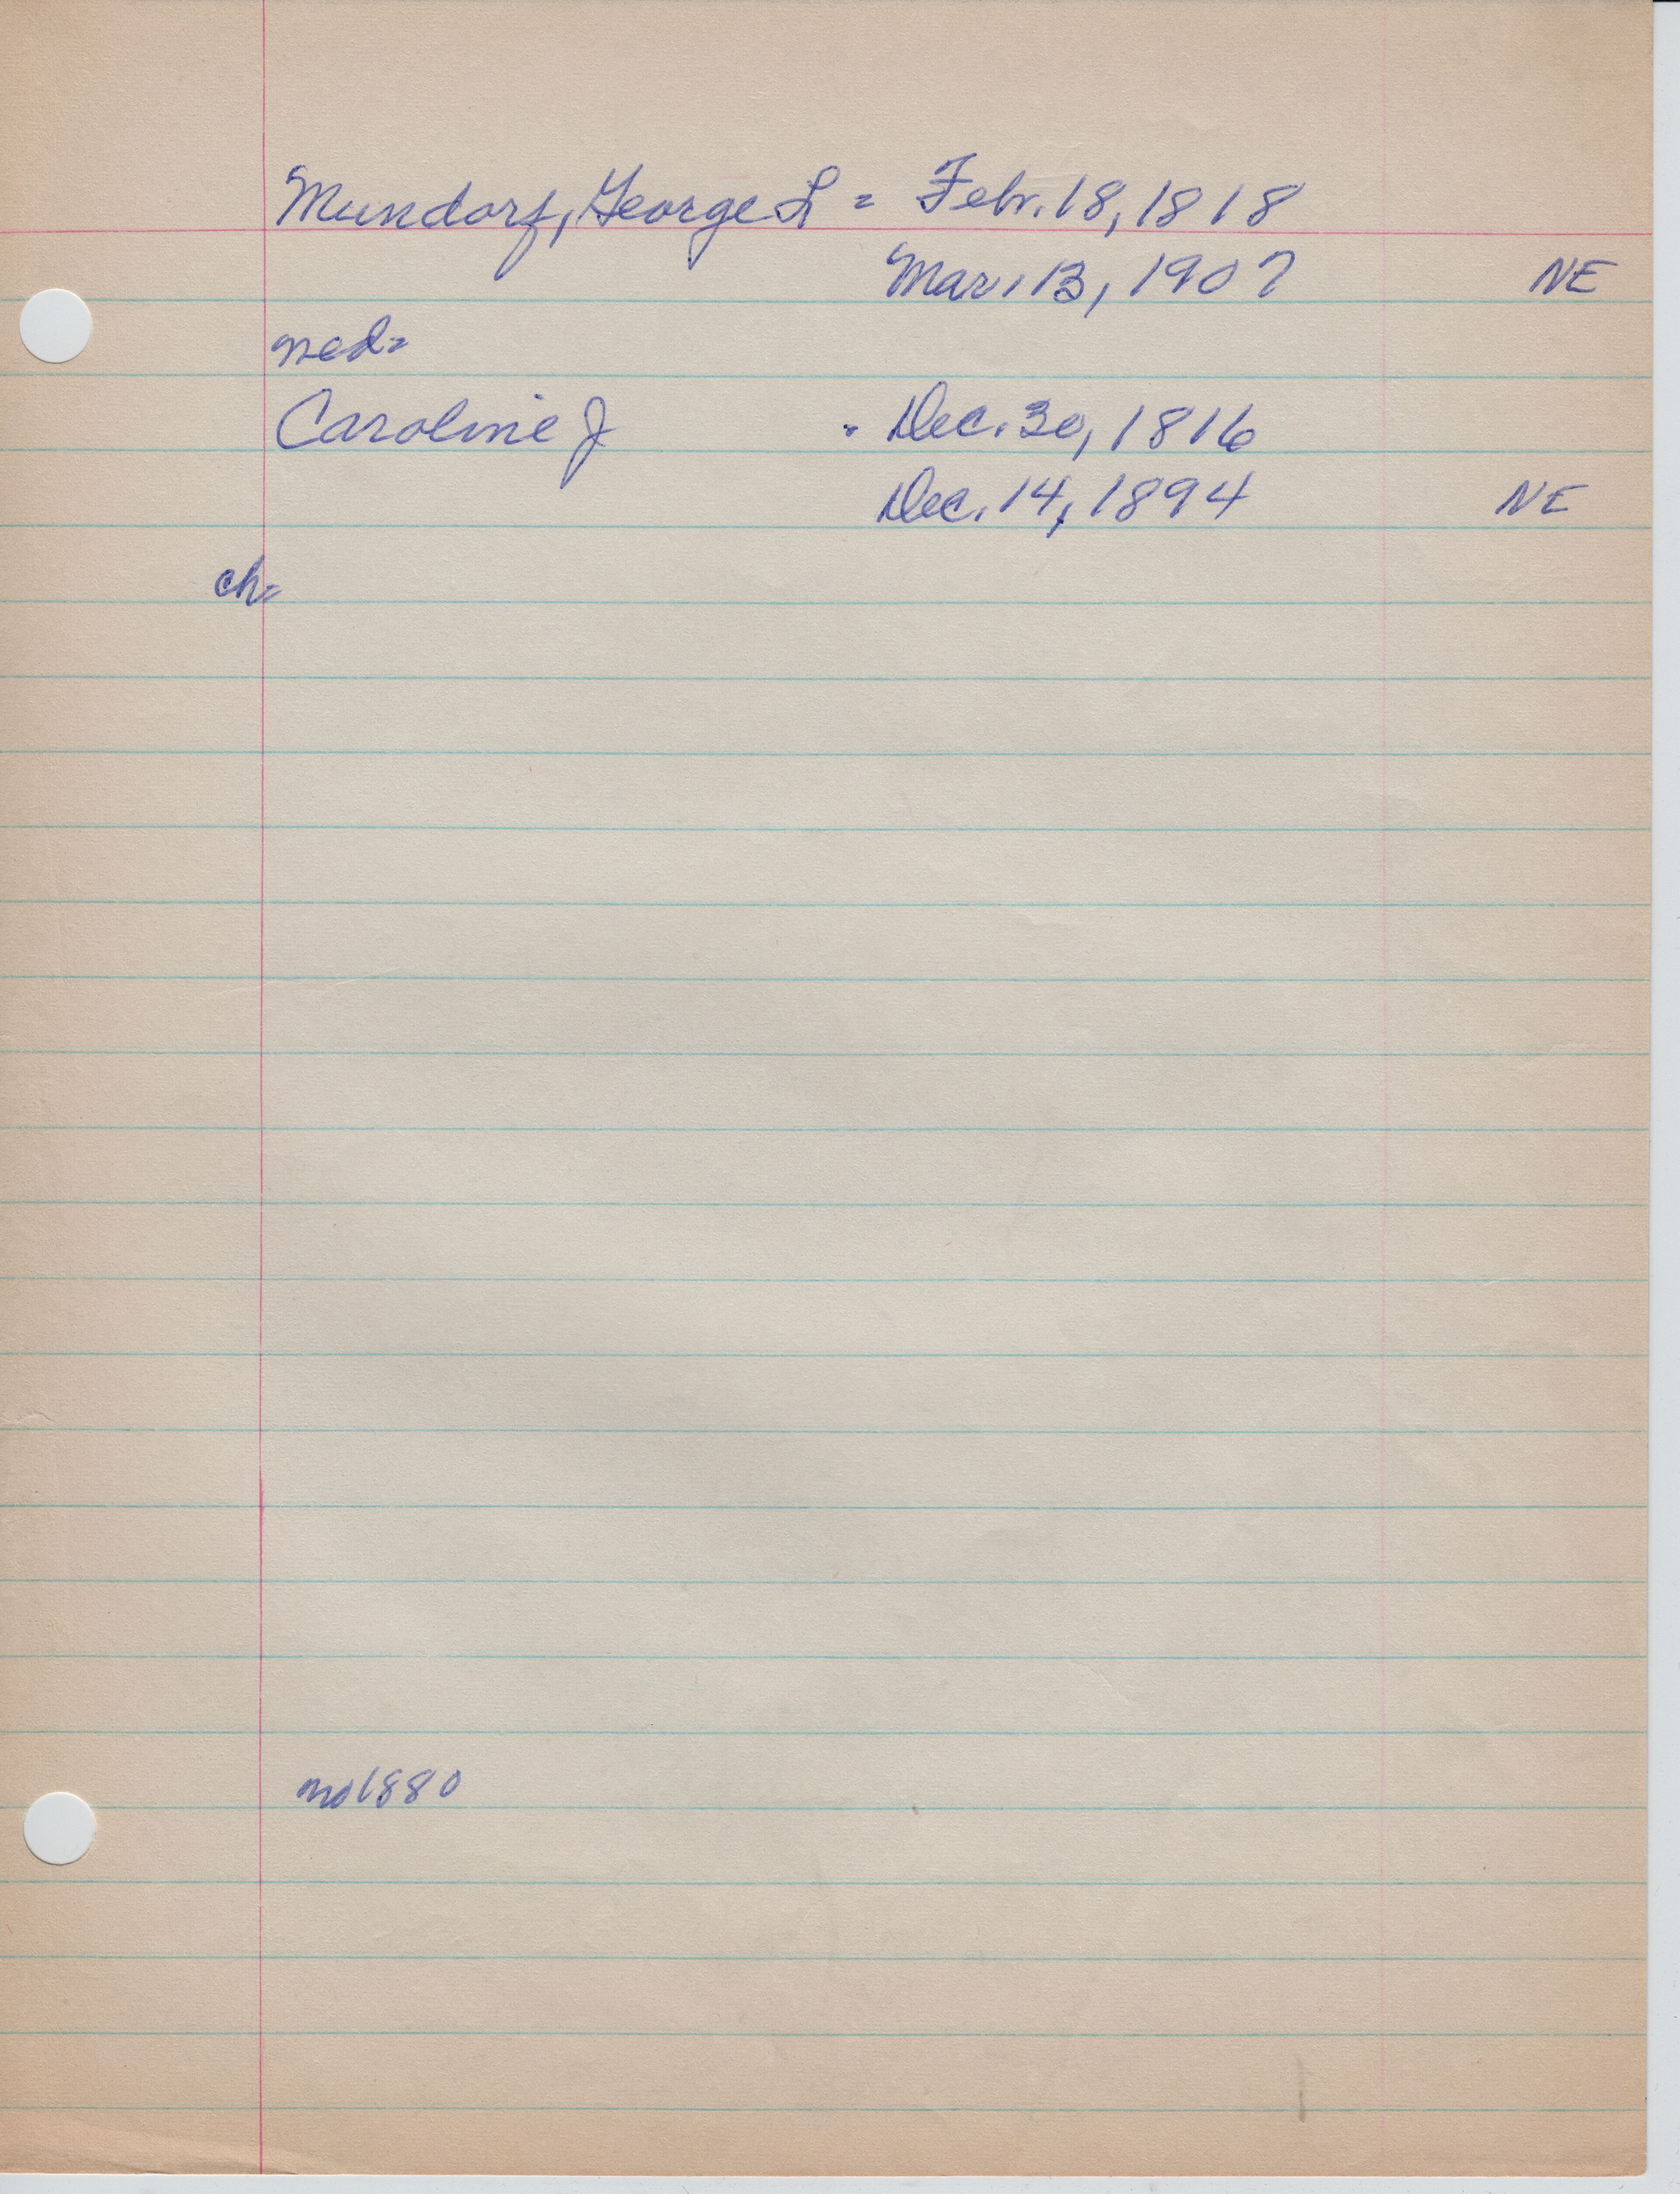 Mundorf, George L = Febr. 18, 1818
Mar. 13, 1907 NE
med=
Caroline J - Dec. 30, 1816
Dec. 14, 1894 NE
ch=
no 1880